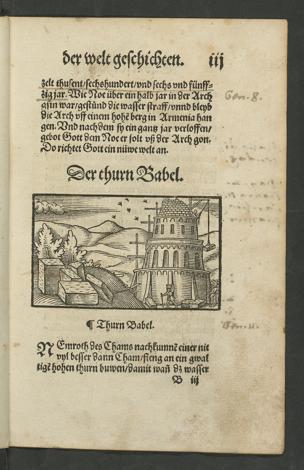 der welt geschichten. iij
zelt thusent/sechshundert/vnd sechs vnd fünff⸗
zig jar. Wie Noe über ein halb jar in der Arch
gsin war/gestůnd die wasser straff/vnnd bleyb
die Arch vff einem hohẽ berg in Armenia han
gen. Vnd nach dem sy ein gantz jar verloffen/
gebot Gott dem Noe er solt vß der Arch gon.
Do richtet Gott ein nüwe welt an.
Gen. 8.
Der thurn Babel.
¶ Thurn Babel.
Gen. 11.
NEmroth des Chams nachkunnẽ einer nit
vyl besser dann Cham/fieng an ein gwal
tigẽ hohen thurn buwen/damit wañ dz wasser
B iij